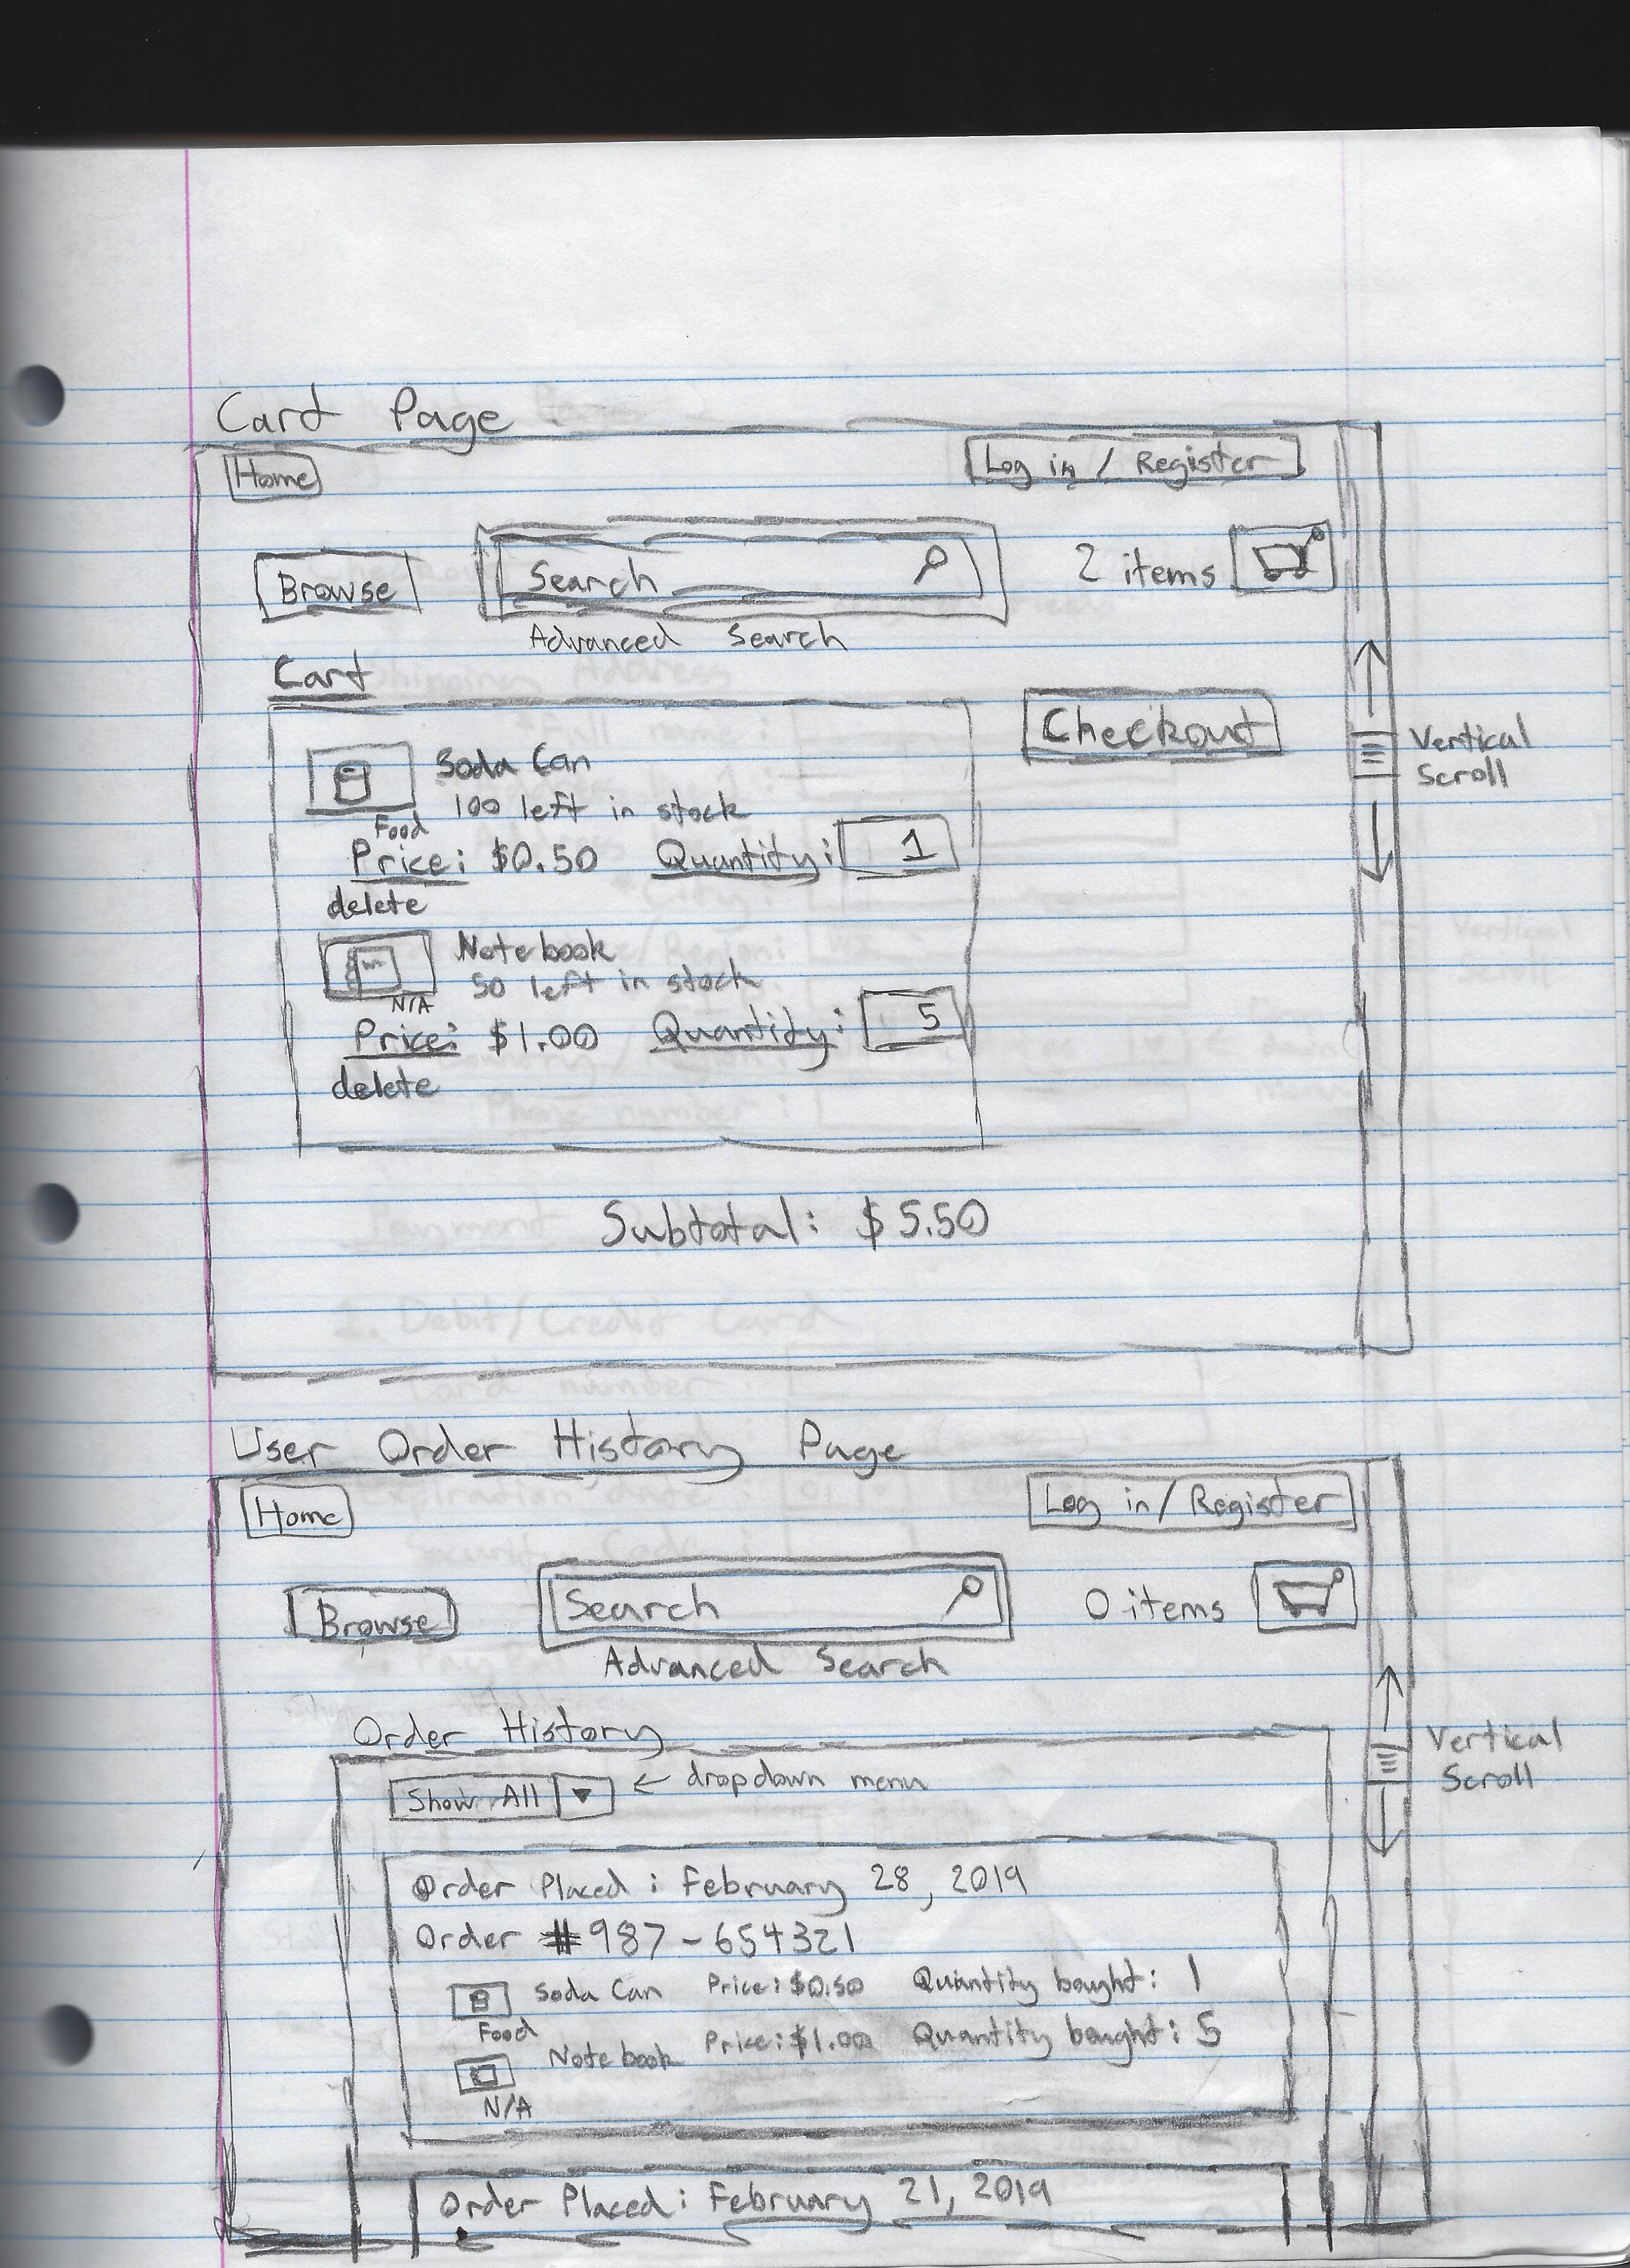 Card Page
Home
Log in / Register
Browse
Search
2 items
Advanced Search
Cart
Checkout
Soda Can
100 left in stock
Food
Price: $0.50 Quantity: 1
delete
Notebook
50 left in stock
N/A
Price: $1.00 Quantity: 5
delete
Vertical
Scroll
Subtotal: $5.50
User Order History Page
Home
Log in / Register
Browse
Search
0 items
Advanced Search
Order History
Show All ← dropdown menu
Vertical
Scroll
Order Placed: February 28, 2019
Order #987-654321
Soda Can Price: $0.50 Quantity bought: 1
Food
Notebook Price: $1.00 Quantity bought: 5
N/A
Order Placed: February 21, 2019